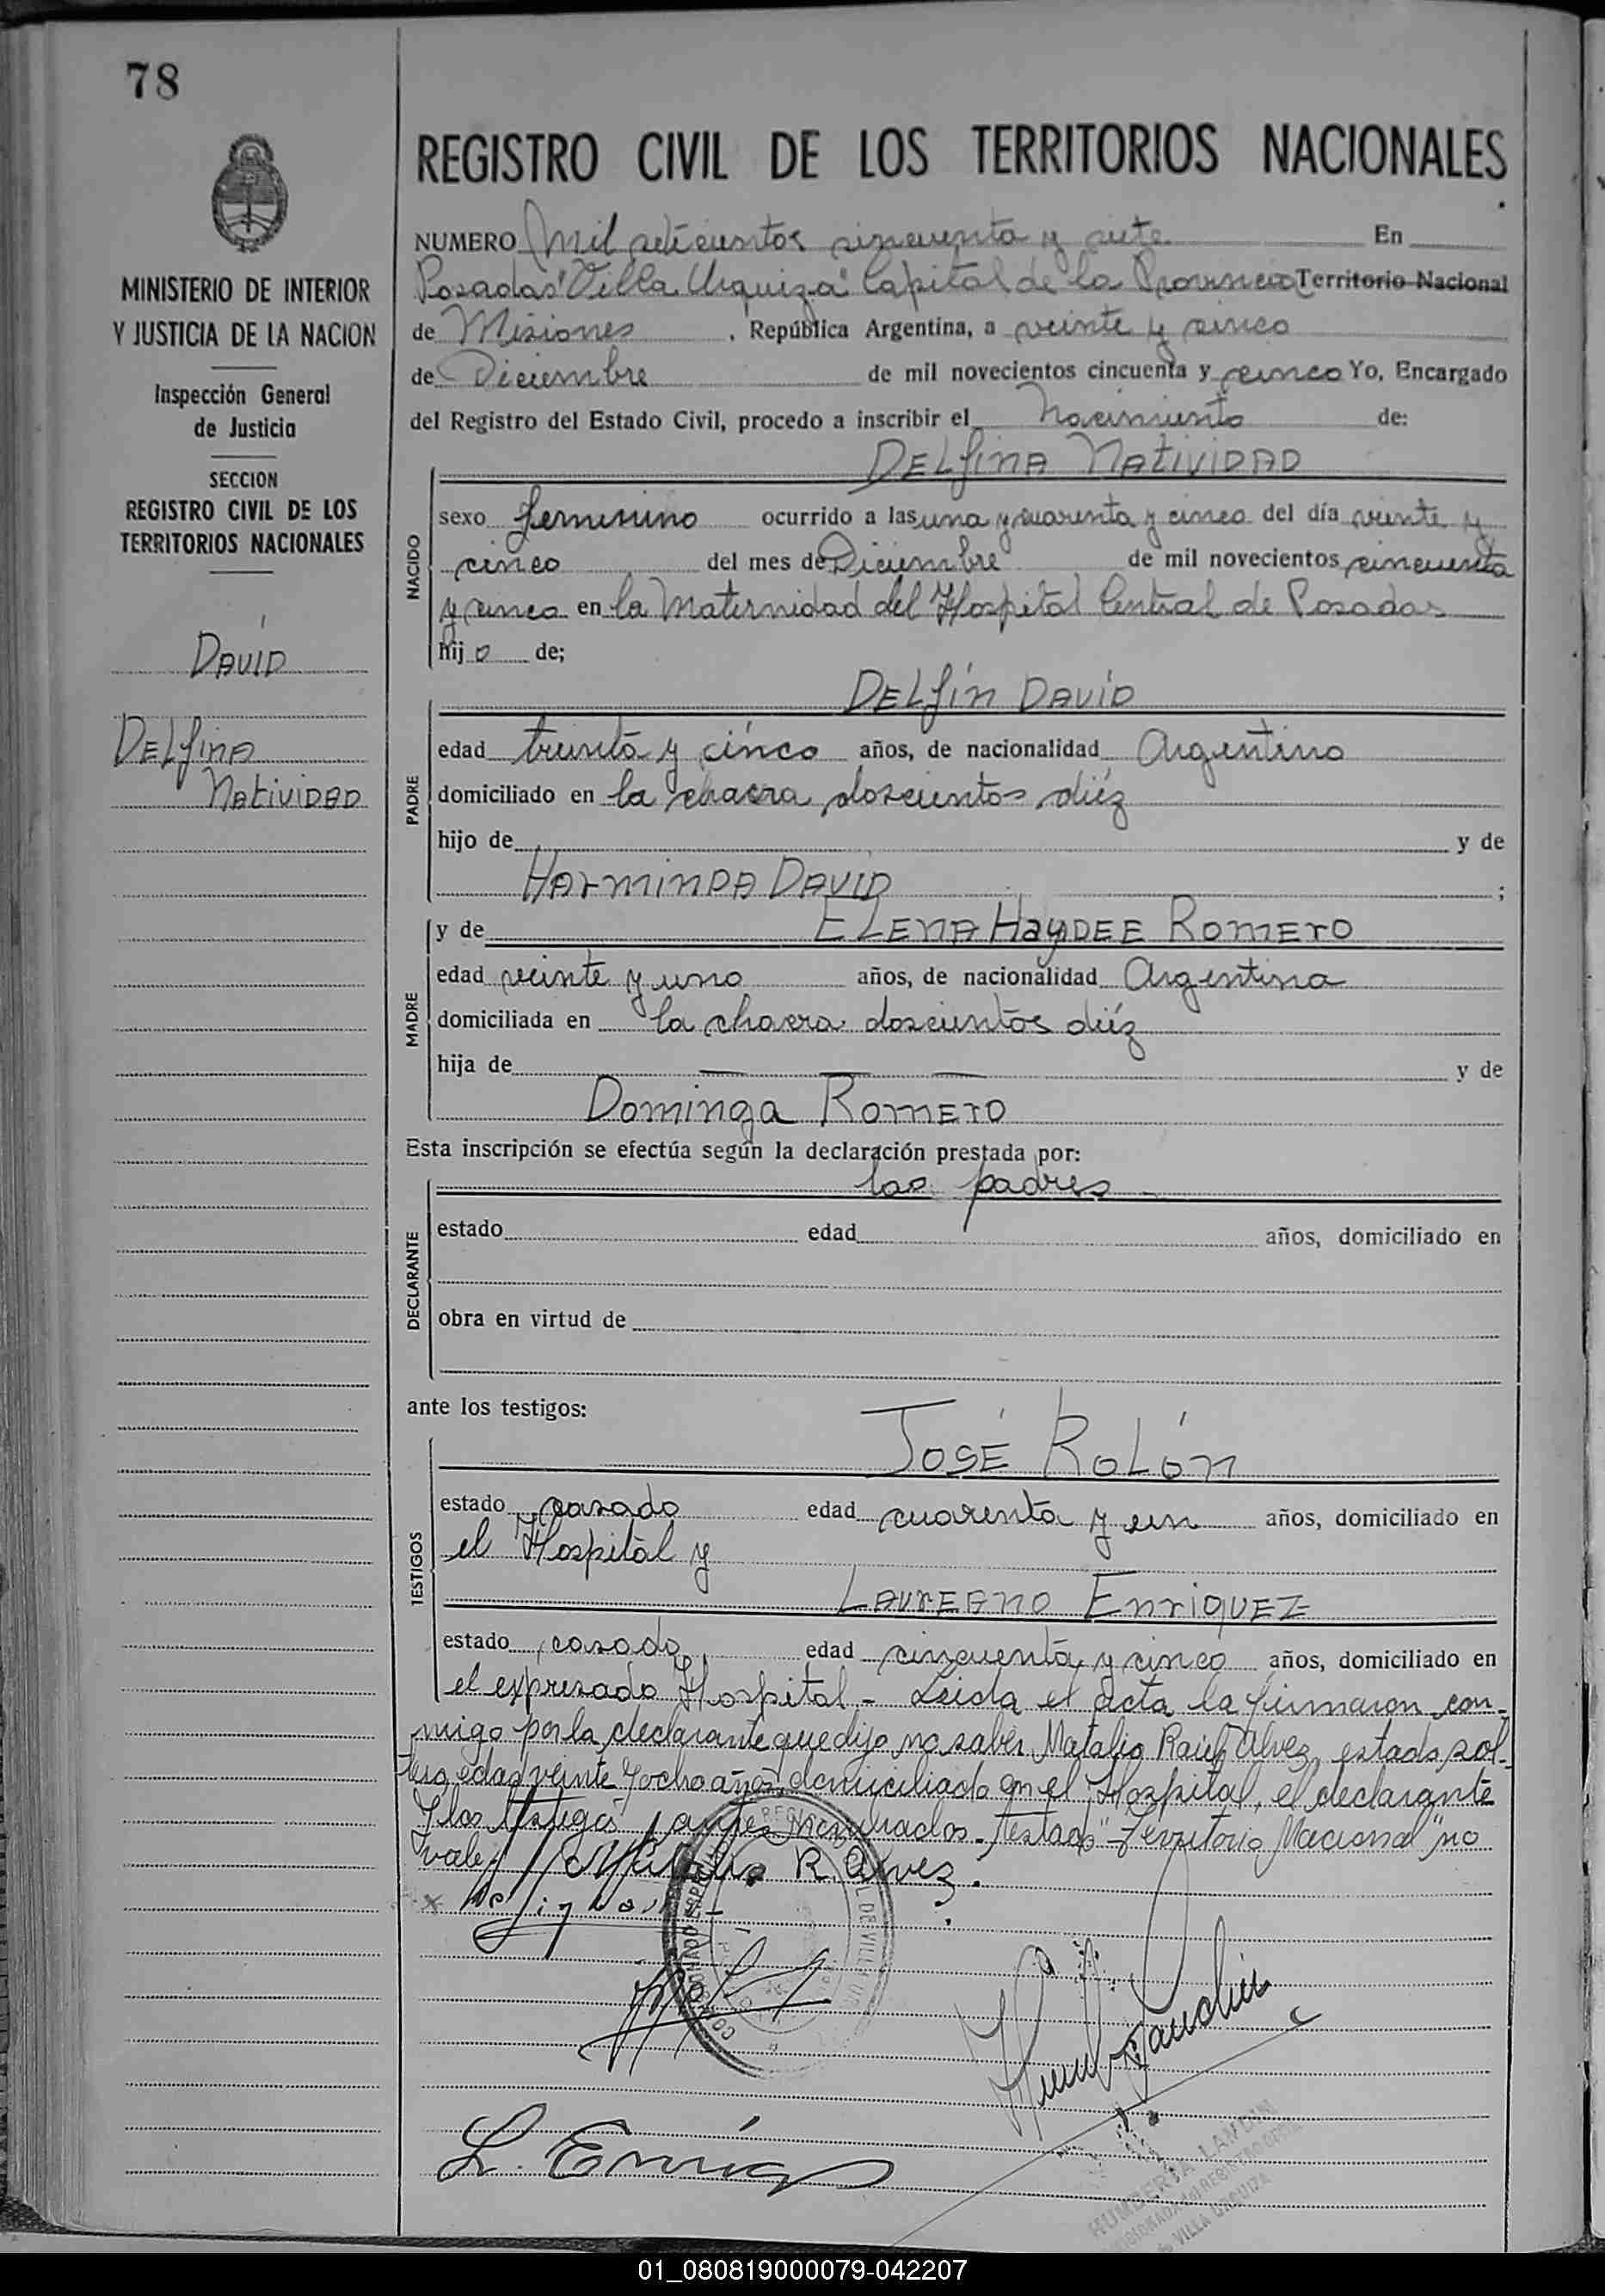 78
MINISTERIO DE INTERIOR
Y JUSTICIA DE LA NACION
Inspección General
de Justicia
SECCION
REGISTRO CIVIL DE LOS
TERRITORIOS NACIONALES
DAVID
DELfINA
NATIVIDAD
REGISTRO CIVIL DE LOS TERRITORIOS NACIONALES
NUMERO Mil setecientos cincuenta y siete En
Posadas "Villa Urquiza" Capital de la Provincia Territorio Nacional
de Misiones, República Argentina, a veinte y cinco
de Diciembre de mil novecientos cincuenta y cinco Yo, Encargado
del Registro del Estado Civil, procedo a inscribir el Nacimiento de:
DELfINA NATIVIDAD
NACIDO
sexo femenino ocurrido a las una y cuarenta y cinco del día veinte y
cinco del mes de Diciembre de mil novecientos cincuenta
y cinco en la Maternidad del Hospital Central de Posadas
hijo de;
DELfÍN DAVID
PADRE
edad treinta y cinco años, de nacionalidad Argentino
domiciliado en la chacra doscientos diéz
hijo de y de
HARMINDA DAVID ;
y de ELENA HAYDEE ROMERO
MADRE
edad veinte y uno años, de nacionalidad Argentina
domiciliada en la chacra doscientos diéz
hija de — — — y de
DOMINGA ROMERO
Esta inscripción se efectúa según la declaración prestada por:
los padres
DECLARANTE
estado edad años, domiciliado en
obra en virtud de
ante los testigos:
JOSÉ ROLÓN
TESTIGOS
estado casado edad cuarenta y un años, domiciliado en
el Hospital y
LAUREANO ENRIQUEZ
estado casado edad cincuenta y cinco años, domiciliado en
el expresado Hospital - Leida el acta la firmaron con-
migo por la declarante que dijo no saber Natalio Raúl Alvez, estado sol-
tero edad veinte y ocho años, domiciliado en el Hospital, el declarante
y los testigos antes nombrados. Testado "Territorio Nacional" no
vale
Natalio R. Alvez.
L. Enriq
HUMBERTA LANDIN
VILLA URQUIZA
01_080819000079-042207